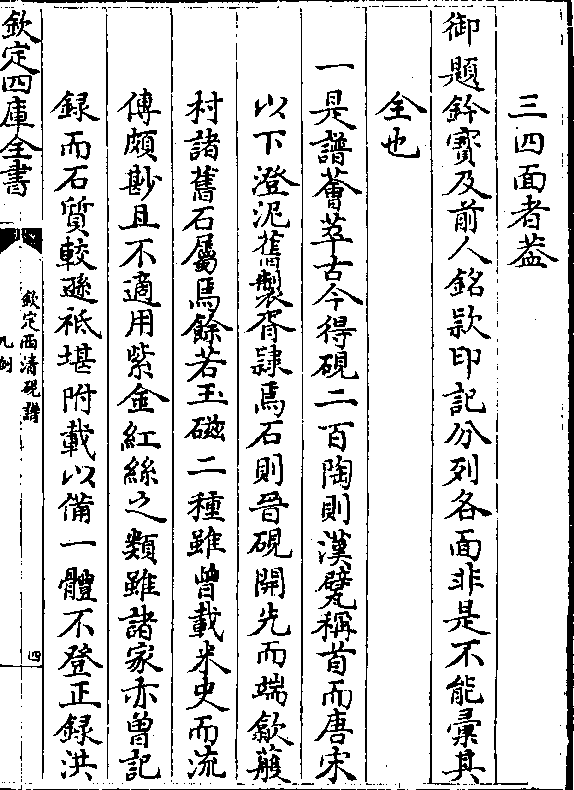 三四面者葢
御題鈐寳及前人銘款印記分列各面非是不能彚其
全也
一是譜薈萃古今得硯二百陶則漢甓稱首而唐宋
以下澄泥舊製胥隷焉石則晉硯開先而端歙蘄
村諸舊石屬焉餘若玉磁二種雖曾載米史而流
傳頗尠且不適用紫金紅絲之類雖諸家亦曽記
録而石質較遜祗堪附載以備一體不登正録洪
欽定四庫全書
欽定西清硯譜
凡例
四